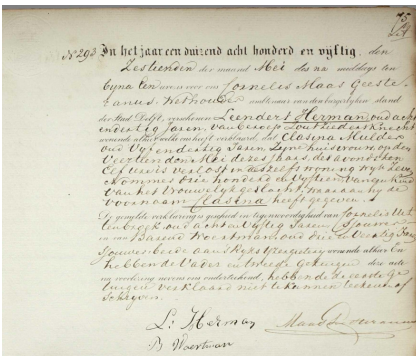 75
N° 293 In het jaar een duizend acht honderd en vijftig, den
Zestienden der maand Mei des na middags ten
Eyna Een ure is voor ons Cornelis Maas Geeste
ranus Wethouder ambtenaar van den burgerlijken stand
der Stad Delft, verschenen Leendert Herman oud acht
endertig Jaren van beroep Zoutziedersknecht
wonende alhier welke ons heeft verklaard, dat Clasina Mulder
oud Vyf endertig Jaren Zyne huisvrouw, op den
Veertienden Mei dezes Jaars, des avonds ten
Elf ure is verlost in haar zelfs woning wyk Zeven
Nommer Drie honderd en Vyftien van een kind
van het Vrouwelyk geslacht, waaraan hy de
voornaam Clasina heeft gegeven.
De gezegde verklaring is geschied in tegenwoordigheid van Cornelis
oud acht en Vyftig Jaren Sjouwer
en van Barend Woertman oud drie en Veertig Jaren
Sjouwer beide aan 's Ryks wonende alhier En
hebben de Vader en tweede Getuigen deze acte
na voorlezing nevens ons onderteekend, hebbende de eerste Ge-
tuigen verklaard niet te kunnen teekenen of
Schryven.
L: Herman
B Woertman